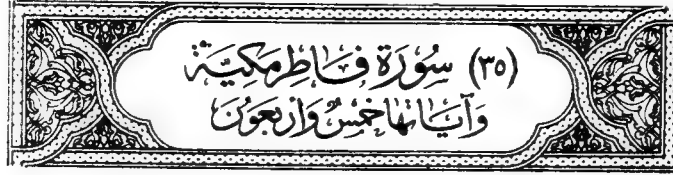 (٣٥) سُورَة فَاطِر مَكِيَّة
وَآيَاتها خَمسٌ وَأربَعُونَ